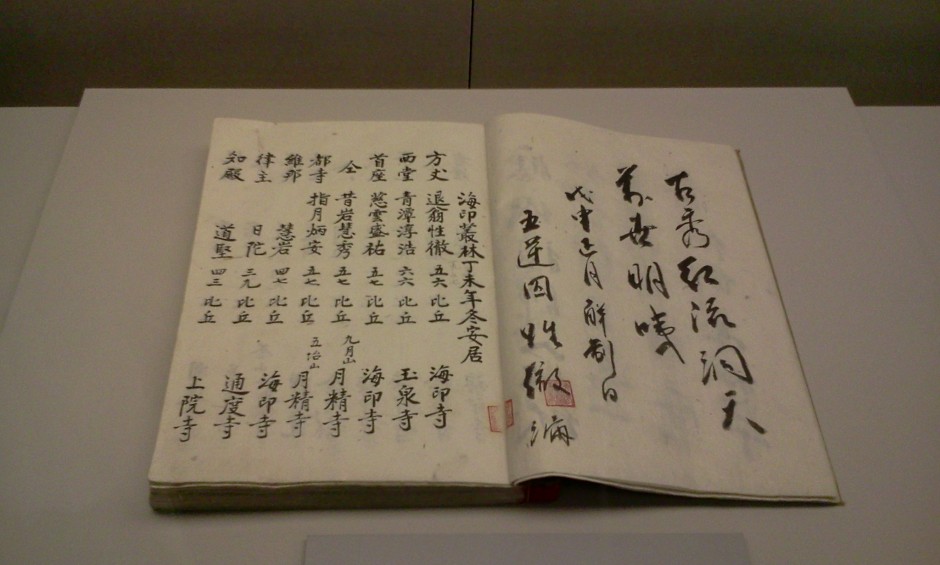 秀紅流洞天
萬明
戊申正月解制日
五逆囚性徹
海印叢林丁未年冬安居
方丈 退翁性徹 五六 比丘 海印寺
西堂 青潭淳浩 六六 比丘 玉泉寺
首座 慈雲盛祐 五七 比丘 海印寺
仝 昔岩慧秀 五七 比丘 九月山 月精寺
都寺 指月炳安 五七 比丘 五冶山 月精寺
維那 慧岩 四七 比丘 海印寺
律主 日陀 三九 比丘 通度寺
知殿 道堅 四三 比丘 上院寺